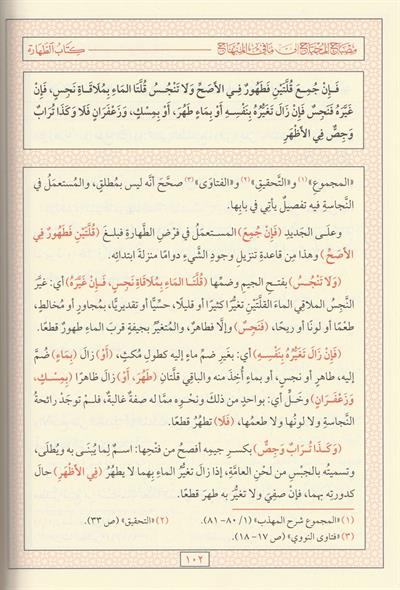 مصباح المحتاج إلى معاني المنهاج
كتاب الطهارة
فَإِنْ جُمِعَ قُلَّتَيْنِ فَطَهُورٌ فِي الأَصَحِّ وَلَا تَنْجُسُ قُلَّتَا المَاءِ بِمُلَاقَاةِ نَجِسٍ، فَإِنْ
غَيَّرَهُ فَنَجِسٌ فَإِنْ زَالَ تَغَيُّرُهُ بِنَفْسِهِ أَوْ بِمَاءٍ طَهُرَ، أَوْ بِمِسْكٍ، وَزَعْفَرَانٍ فَلَا وَكَذَا تُرَابٌ
وَجِصٌّ فِي الأَظْهَرِ
«المجموعِ»(١) و«التَّحقيقِ»(٢) و«الفتاوَى»(٣) صحَّحَ أنَّه ليس بمُطلقٍ، والمُستعمَلُ في
النَّجاسةِ فيه تفصيلٌ يأتي في بابِها.
وعلَى الجَديدِ (فَإِنْ جُمِعَ) المستعمَلُ في فرْضِ الطَّهارةِ فبلغَ (قُلَّتَيْنِ فَطَهُورٌ فِي
الأَصَحِّ) وهذا مِن قاعدةِ تنزيلِ وجودِ الشَّيءِ دوامًا منزلةَ ابتدائِه.
(وَلَا تَنْجُسُ) بفتحِ الجيمِ وضمِّها (قُلَّتَا المَاءِ بِمُلَاقَاةِ نَجِسٍ، فَإِنْ غَيَّرَهُ) أي: غيَّرَ
النَّجِسُ الملاقِي الماءَ القلَّتينِ تغيُّرًا كثيرًا أو قليلًا، حسِّيًّا أو تقديريًّا، بمُجاورٍ أو مُخالطٍ،
طعمًا أو لونًا أو ريحًا، (فَنَجِسٌ) وإلَّا فطاهرٌ، والمُتغيِّرُ بجيفةٍ قربَ الماءِ طهورٌ قطعًا.
(فَإِنْ زَالَ تَغَيُّرُهُ بِنَفْسِهِ) أي: بغيرِ ضمِّ ماءٍ إليه كطولِ مُكثٍ، (أَوْ) زالَ (بِمَاءٍ) ضُمَّ
إليه، طاهرٍ أو نجسٍ، أو بماءٍ أُخِذَ منه والباقِي قلَّتانِ (طَهُرَ، أَوْ) زالَ ظاهرًا (بِمِسْكٍ،
وَزَعْفَرَانٍ) وخَلٍّ أي: بواحدٍ من ذلك ونحوِه ممَّا له صفةٌ غالبةٌ، فلم توجَدْ رائحةُ
النَّجاسةِ ولا لونُها ولا طعمُها، (فَلَا) تطهُرُ قطعًا.
(وَكَذَا تُرَابٌ وَجِصٌّ) بكسرِ جيمِه أفصحُ مِن فتْحِها: اسمٌ لِما يُبنَى به ويُطلَى،
وتسميتُه بالجبْسِ مِن لحْنِ العامَّةِ، إذا زالَ تغيُّرُ الماءِ بِهما لا يطهُرُ (فِي الأَظْهَرِ) حالَ
كدورتِه بِهما، فإنْ صفِيَ ولا تغيُّرَ به طهرَ قطعًا.
(١) «المجموع شرح المهذب» (١/ ٨٠- ٨١).
(٢) «التحقيق» (ص ٣٣).
(٣) «فتاوى النووي» (ص ١٧- ١٨).
١٠٢